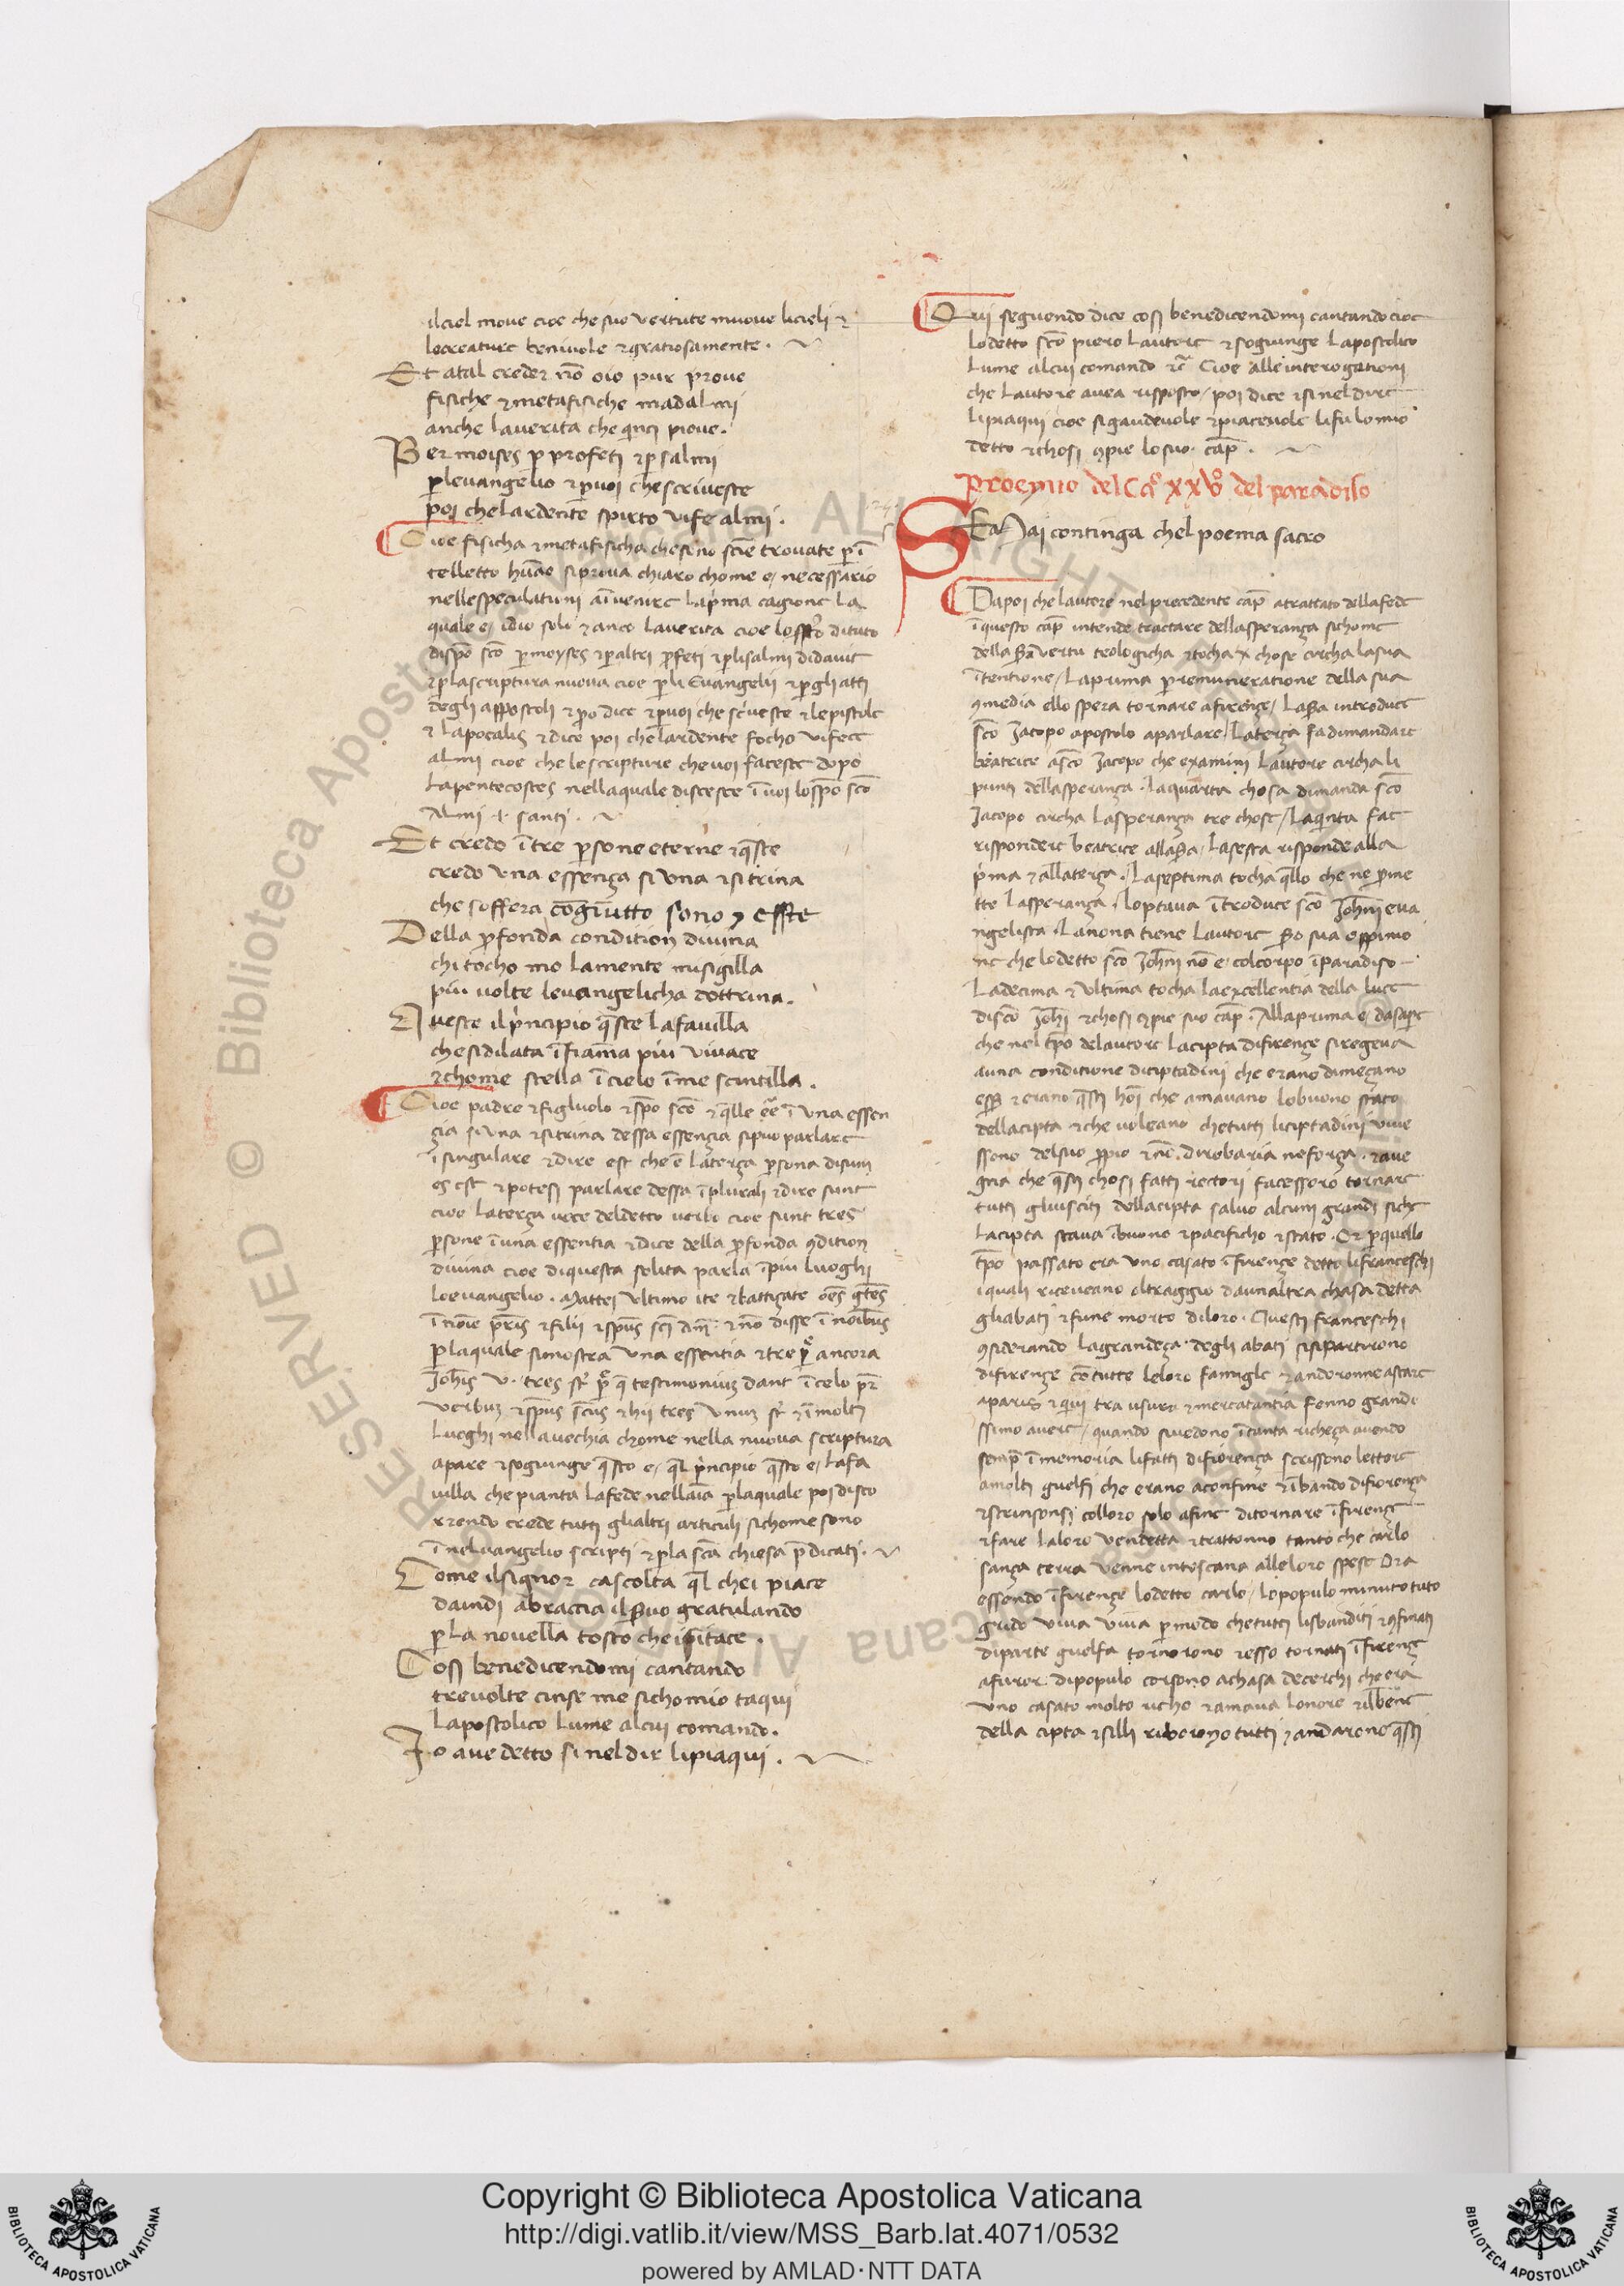 ilciel move cioe che suo vertute muove licieli ⁊
locreature benivole ⁊gratiosamente .
Et atal creder nō oio pur prove
fisiche ⁊metafisiche madalmi
anche laverita che q̄nci piove .
Per moises ꝑ profeti ⁊ꝑ salmi
ꝑlevangelio ⁊ꝑvoi chescriveste
poi chelardente spirto vife almi .
Cioe fisicha ⁊metafisicha chesino sciēe trovate ꝑ ī
telletto hūao siprova chiaro chome e/ necessario
nellespeculationi aīvenire laprima cagione la
quale e/ idio solo ⁊anco laverita cioe lo dituto
dispō scō ꝑmoyses ⁊ꝑaltri ꝓfeti ⁊ꝑlisalmi didavit
⁊ꝑlascriptura nuova cioe ꝑli Evangelii ⁊ꝑgli atti
degli appostoli ⁊ꝑo dice ⁊ꝑvoi che sc̄veste ⁊lepistole
⁊ lapocalis ⁊dice poi chelardente focho vifece
almi cioe che lescripture chevoi faceste dopo
lapentecostes nellaquale discesce ī voi lospō scō
Almi .i. santi .
Et credo ītre ꝑsone eterne ⁊q̄ste
credo una essenza si una ⁊si trina
che soffera cōgiūtto sono ⁊ esste
Della ꝓfonda condition divina
chi tocho mo lamente misigilla
piu volte levangelicha dottrina .
Queste ilprincipio q̄ste lafavilla
chesidilata īfiama piu vivace
⁊chome stella īcielo īme scintilla .
Cioe padre ⁊figluolo ⁊spō scō ⁊q̄lle eē ī una essen
za si una ⁊sitrina dessa essenzia sipuo parlare
īsingulare ⁊dire est che e laterza ꝑsona disum
es est ⁊potesi parlare dessa īplurali ⁊dire sunt
cioe laterza voce deldetto verbo cioe sunt tres
ꝑsone īuna essentia ⁊dice della ꝓfonda ꝯdition
divina cioe diquesta solita parla īpiu luoghi
loevangelio . Mattei ultimo ite ⁊battizate oēs gētes
īnoīe pr̄is ⁊filii ⁊spūs scī am̄ ⁊nō disse ī noībus
ꝑlaquale simostra una essentia ⁊tre ꝑ ancora
Johīs v . tres st̄ ꝑ q̄ testimonium dant ī celo pr̄
verbum ⁊spūs scūs ⁊hii tres unum st̄ ⁊īmolti
luoghi nellavechia chome nella nuova scriptura
apare ⁊sogiunge q̄sto e/ q̄l principio q̄sto e/ lafa
villa che pianta lafede nellaīa ꝑlaquale poi disco
rrendo crede tutti glialtri articuli sichome sono
īnelvangelio scripti ⁊ꝑla scā chiesa p̄dicati .
Come ilsignor cascolta q̄l chei piace
daindi abraccia ilSvo gratulando
ꝑla novella tosto cheisitace .
Cosi benedicendomi cantando
trevolte cinse me sichomio taqui
lapostolico lume alcui comando .
Io ave detto si neldir lipiaqui .
Qui seguendo dice cosi benedicendomi cantando cioe
lodetto scō piero lautore ⁊sogiunge lapostolico
lume alcui comando ⁊c̄ Cioe alleinterogationi
che lautore avea risposto / poi dice ⁊sineldire
lipiaqui cioe sigaudevole ⁊piacevole lifu lomio
detto ⁊chosi ꝯpie losuo . cap̄ .
Proemio del Caº xxvº del paradiso
SEMai continga chel poema sacro
Dapoi che lautore nelprecedente cap̄ atrattato dellafede
īquesto cap̄ intende tractare dellasperanza sichome
della vertu teologicha ⁊tocha x chose circha lasua
ītentione / laprima ꝑremuneratione della sua
ꝯmedia ello spera tornare afirenze / la introduce
scō Jacopo apostolo aparlare / laterza fadimandare
beatrice asco Jacopo che examini lautore circha li
punti dellasperanza . laquarta chosa dimanda scō
Jacopo circha lasperanza tre chose / laq̄nta fae
rispondere beatrice alla / lasesta risponde alla
prima ⁊allaterza . laseptima tocha q̄llo che ne ꝓme
tte lasperanza . loptava ītroduce scō Johīni eva
ngelista . lanona tiene lautore sua oppinio
ne che lodetto scō Johīni nō e/ colcorpo īparadiso
ladecima ⁊ultima tocha laexcellentia della luce
discō Johi ⁊chosi ꝯpie suo cap̄ . Allaprima e/ dasaꝑe
che nel tp̄o delautore lacipta difirenze siregeva
auna conditione diciptadini che erano dimezano
⁊erano q̄sti hoī che amavano lobuono stato
dellacipta ⁊che voleano chetutti liciptadini vive
ssono delsuo ꝓpio ⁊nō dirobaria neforza . ⁊ave
gna che q̄sti chosi fatti rectori facessoro tornare
tutti gliusciti dellacipta salvo alcuni grandi siche
lacipta stava ībuono ⁊pacificho ⁊stato . Or ꝑquello
tp̄o passato era uno casato īfirenze detto lifranceschi
iquali riceveano oltraggio daunaltra chasa detta
gliabati ⁊fune morto diloro . Questi franceschi
ꝯsiderando lagrandeza degli abati sisipartirono
difirenze cōtutte leloro famigle ⁊andoronne astare
aparis ⁊quivi tra usura ⁊mercatantia fenno grandi
ssimo avere / quando sivedono ītanta richeza avendo
semp̄ īmemoria lifatti difiorenza scrissono lettore
amolti guelfi che erano aconfine ⁊ībando difiorenza
⁊strinsonsi colloro solo afine ditornare īfirenze
⁊fare laloro vendetta ⁊trattonno tanto che carlo
sanza terra venne intoscana alleloro spese Ora
essendo īfirenze lodetto carlo / lopopulo minuto tuto
grido viva viva ꝑmodo chetutti lisbanditi ⁊ꝯfinati
diparte guelfa tornorono ⁊esso tornati īfirenze
afuror dipopulo corsono achasa decerchi che era
uno casato molto richo ⁊amava lonore ⁊ilbene
della cipta ⁊silli riborono tutti ⁊andarono q̄sti
Copyright © Biblioteca Apostolica Vaticana
http://digi.vatlib.it/view/MSS_Barb.lat.4071/0532
powered by AMLAD·NTT DATA
BIBLIOTECA APOSTOLICA VATICANA
BIBLIOTECA APOSTOLICA VATICANA